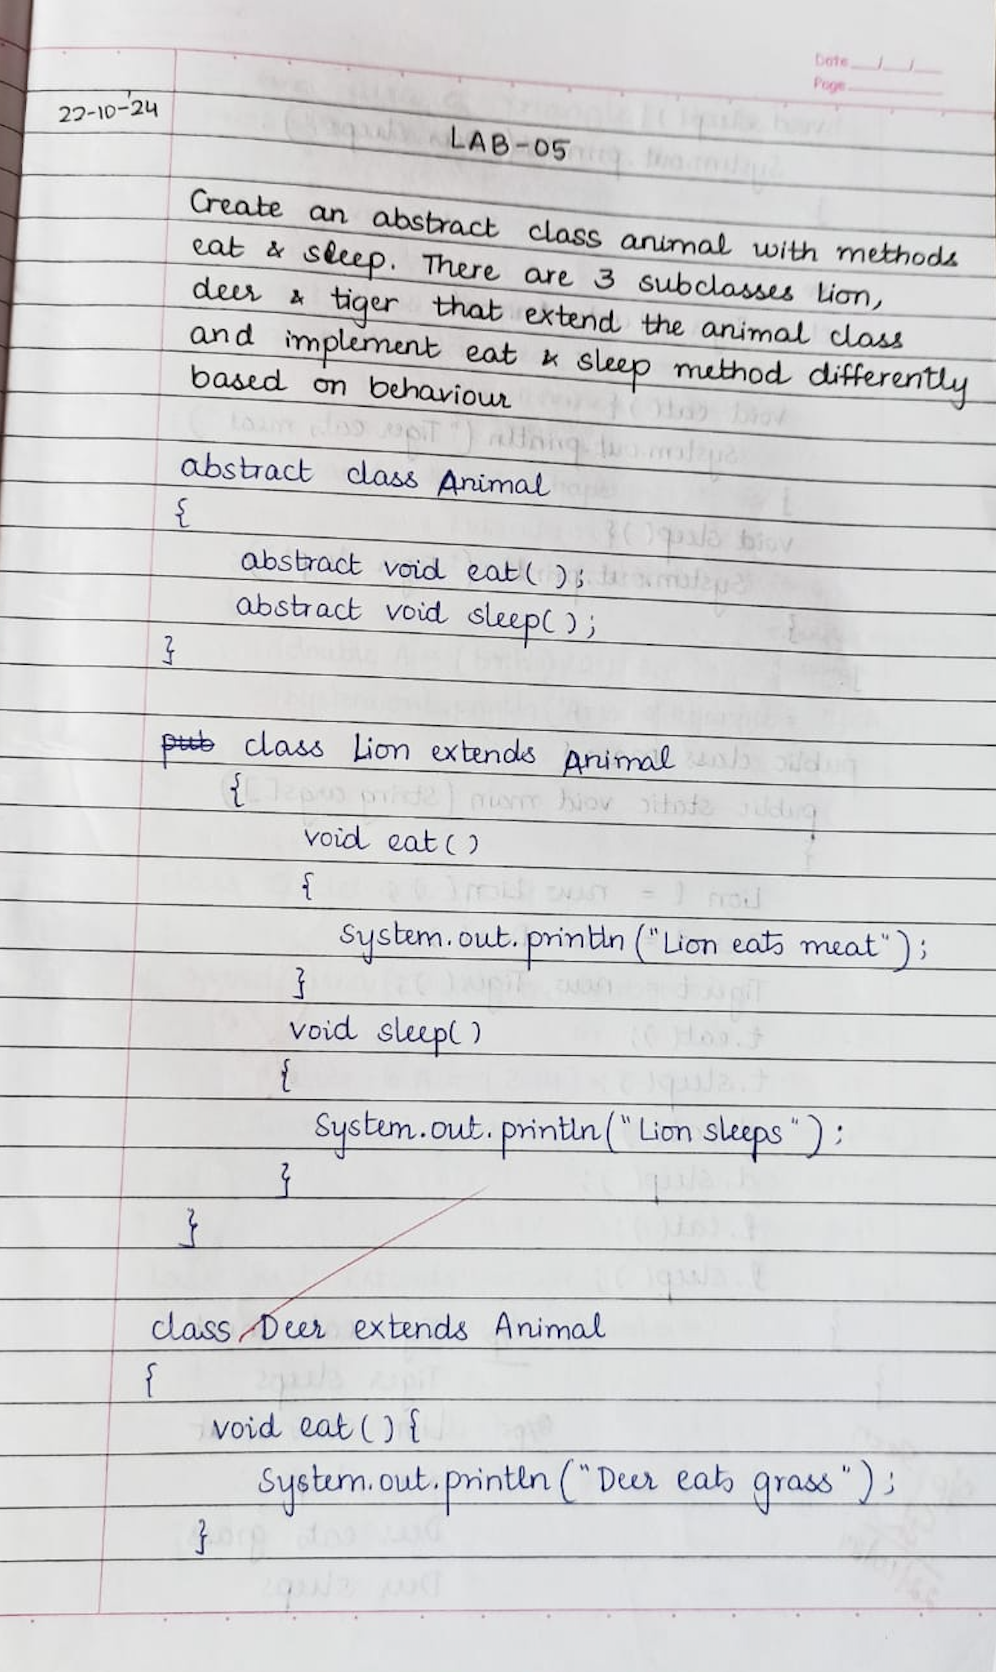 Date / /
Page
22-10-'24
LAB-05
Create an abstract class animal with methods
eat & sleep. There are 3 subclasses lion,
deer & tiger that extend the animal class
and implement eat & sleep method differently
based on behaviour
abstract class Animal
{
abstract void eat( );
abstract void sleep( );
}
pub class Lion extends Animal
{
void eat( )
{
System.out.println ("Lion eats meat");
}
void sleep( )
{
System.out.println("Lion sleeps");
}
}
class Deer extends Animal
{
void eat( ) {
System.out.println ("Deer eats grass");
}